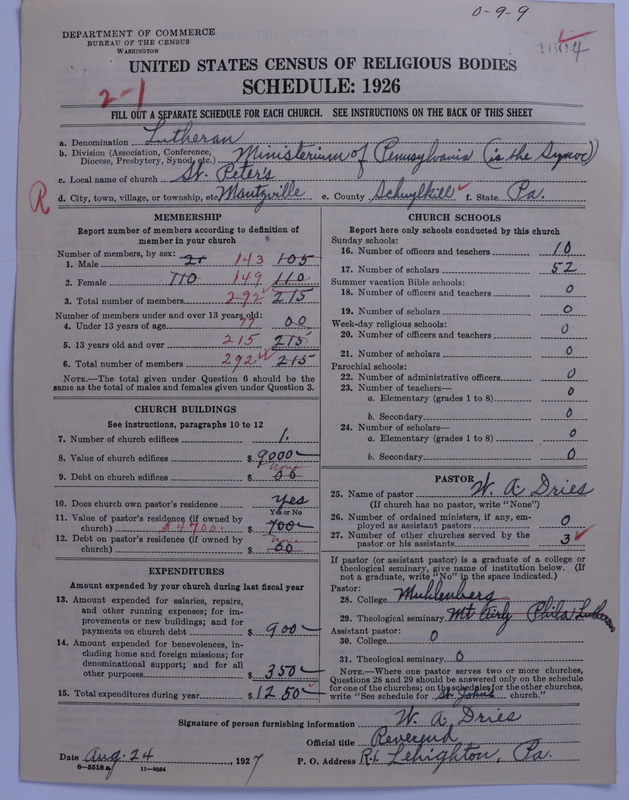 0-9-9
DEPARTMENT OF COMMERCE
BUREAU OF THE CENSUS
WASHINGTON
UNITED STATES CENSUS OF RELIGIOUS BODIES
SCHEDULE: 1926
2-1
FILL OUT A SEPARATE SCHEDULE FOR EACH CHURCH. SEE INSTRUCTIONS ON THE BACK OF THIS SHEET
a. Denomination Lutheran
b. Division (Association, Conference, Diocese, Presbytery, Synod, etc.) Ministerium of Pennsylvania (is the Synod)
c. Local name of church St. Peter's
R
d. City, town, village, or township, etc. Mantzville e. County Schuylkill f. State Pa.
MEMBERSHIP
Report number of members according to definition of
member in your church
Number of members, by sex:
1. Male 143 105
2. Female 110 149 110
3. Total number of members 292 215
Number of members under and over 13 years old:
4. Under 13 years of age 77 00
5. 13 years old and over 215 215
6. Total number of members 292 215
NOTE.—The total given under Question 6 should be the
same as the total of males and females given under Question 3.
CHURCH BUILDINGS
See instructions, paragraphs 10 to 12
7. Number of church edifices 1.
8. Value of church edifices $ 9000
none
9. Debt on church edifices $ 00
10. Does church own pastor's residence yes
Yes or No
11. Value of pastor's residence (if owned by
church) $4700 $ 700
12. Debt on pastor's residence (if owned by none
church) $ 00
EXPENDITURES
Amount expended by your church during last fiscal year
13. Amount expended for salaries, repairs,
and other running expenses; for im-
provements or new buildings; and for
payments on church debt $ 900
14. Amount expended for benevolences, in-
cluding home and foreign missions; for
denominational support; and for all
other purposes $ 350
15. Total expenditures during year $ 1250
CHURCH SCHOOLS
Report here only schools conducted by this church
Sunday schools:
16. Number of officers and teachers 10
17. Number of scholars 52
Summer vacation Bible schools:
18. Number of officers and teachers 0
19. Number of scholars 0
Week-day religious schools:
20. Number of officers and teachers 0
21. Number of scholars 0
Parochial schools:
22. Number of administrative officers 0
23. Number of teachers—
a. Elementary (grades 1 to 8) 0
b. Secondary 0
24. Number of scholars—
a. Elementary (grades 1 to 8) 0
b. Secondary 0
PASTOR
25. Name of pastor W. A. Dries
(If church has no pastor, write "None")
26. Number of ordained ministers, if any, em-
ployed as assistant pastors 0
27. Number of other churches served by the
pastor or his assistants 3
If pastor (or assistant pastor) is a graduate of a college or
theological seminary, give name of institution below. (If
not a graduate, write "No" in the space indicated.)
Pastor:
28. College Muhlenberg
29. Theological seminary Mt Airy Phila Lutheran
Assistant pastor:
30. College 0
31. Theological seminary 0
NOTE.—Where one pastor serves two or more churches,
Questions 28 and 29 should be answered only on the schedule
for one of the churches; on the schedules for the other churches,
write "See schedule for St. Johns church."
Signature of person furnishing information W. A. Dries
Official title Reverend
Date Aug. 24, 1927 P. O. Address R.1. Lehighton, Pa.
8-5518 a 11-9054